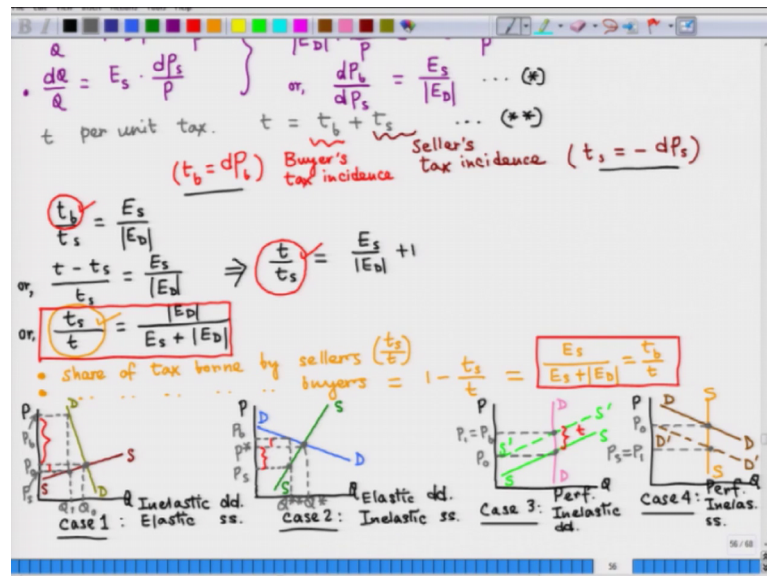 Q P P
. dQ/Q = E_S · dP_S/P or, dP_b/dP_S = E_S/|E_D| ... (*)
t per unit tax. t = t_b + t_s ... (**)
(t_b = dP_b) Buyer's tax incidence Seller's tax incidence (t_s = - dP_S)
t_b/t_s = E_S/|E_D|
or, t - t_s/t_s = E_S/|E_D| ⇒ t/t_s = E_S/|E_D| + 1
or, t_s/t = |E_D|/E_S + |E_D|
• share of tax borne by sellers (t_s/t)
• .. .. .. .. buyers = 1 - t_s/t = E_S/E_S + |E_D| = t_b/t
P D P_b P_0 P_S S D Q_1 Q_0 Q
Inelastic dd.
Case 1 : Elastic ss.
P D P_b P* P_S S S D Q** Q* Q
Elastic dd.
Case 2 : Inelastic ss.
P D S' P_1 = P_b t S P_0 S' S D Q
Case 3 : Perf. Inelastic dd.
P D S P_0 D' P_S = P_1 D D' S Q
Case 4 : Perf. Inelas. ss.
56 / 68
56